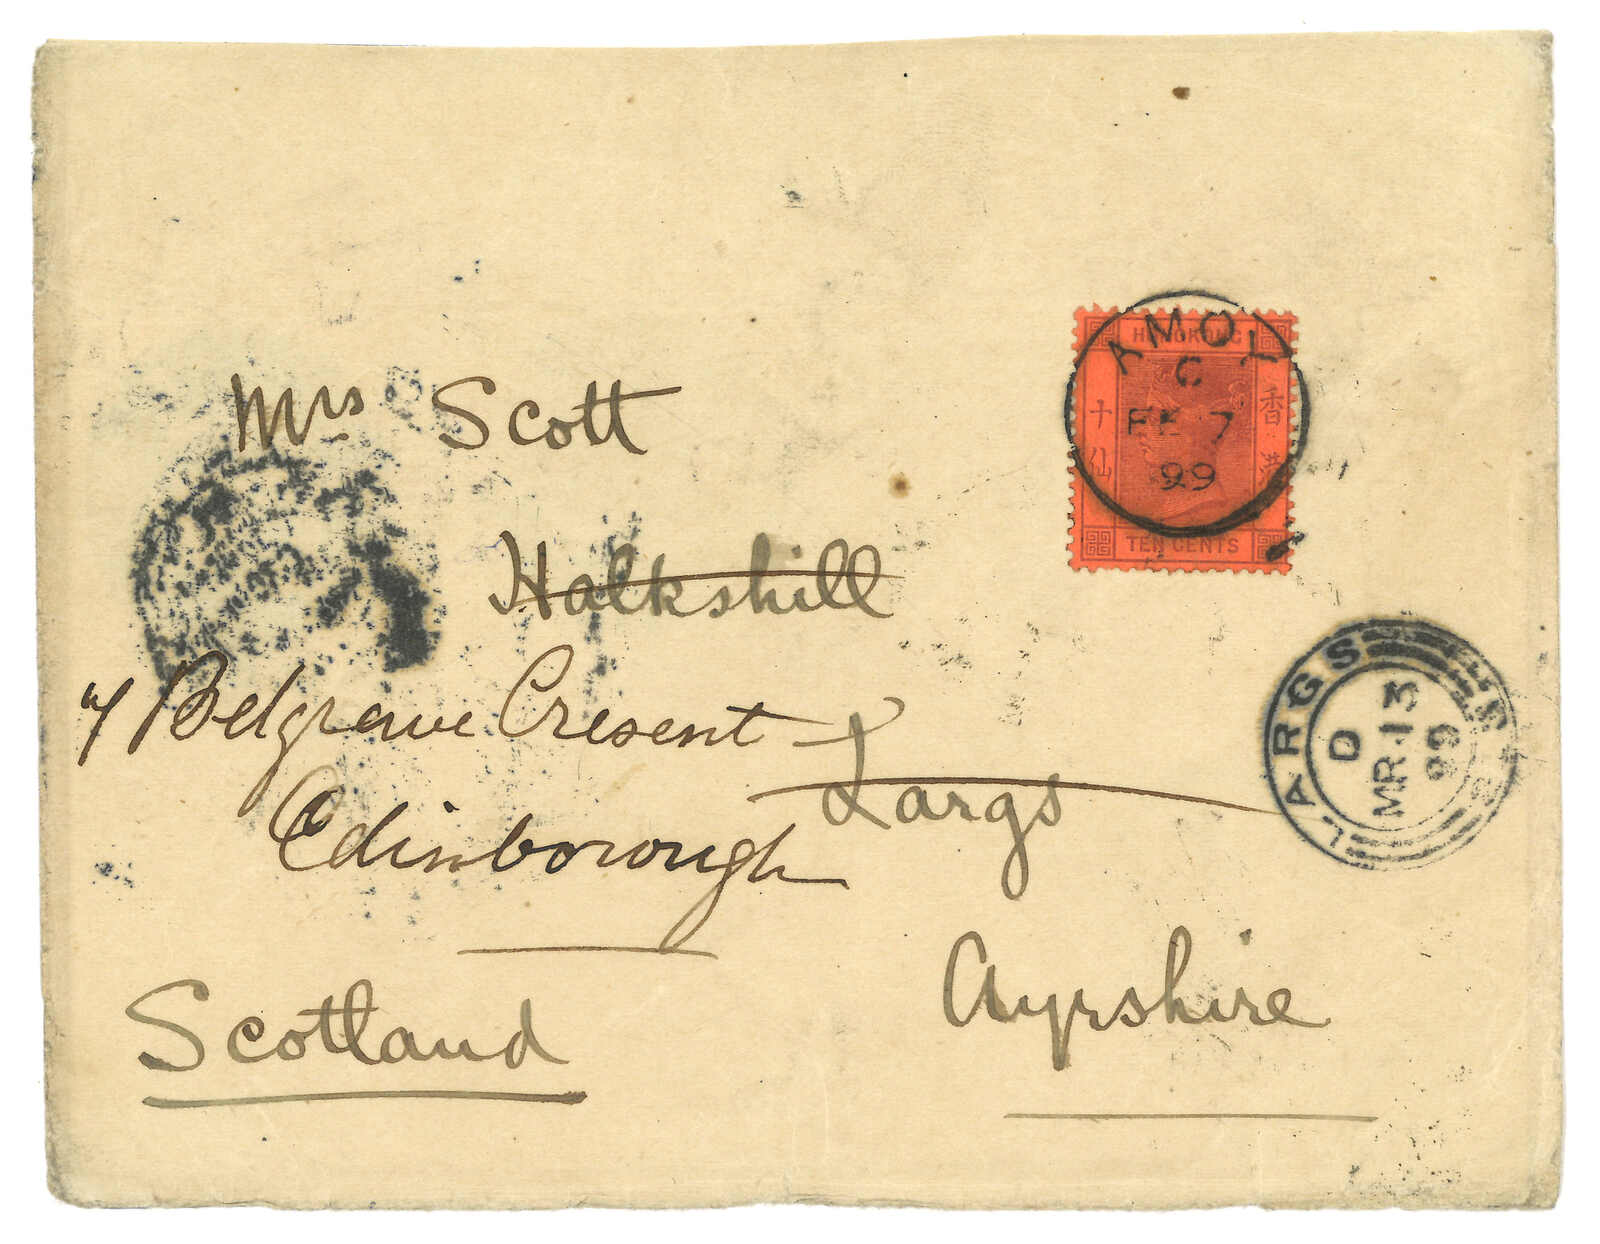 HONGKONG
香港
十仙
TEN CENTS
AMOY
C
FE 7
99
Mrs Scott
Halkshill
Belgrave Cresent
Largs
Edinborough
Ayrshire
Scotland
LARGS
D
MR 13
99